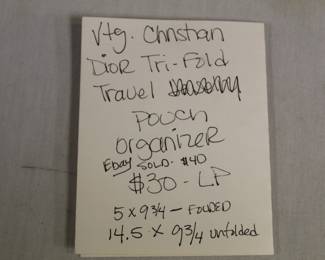 Vtg. Christian
Dior Tri-Fold
Travel
Pouch
organizer
Ebay SOLD- $40
$30 - LP
5 x 9 3/4 - FOLDED
14.5 x 9 3/4 unfolded